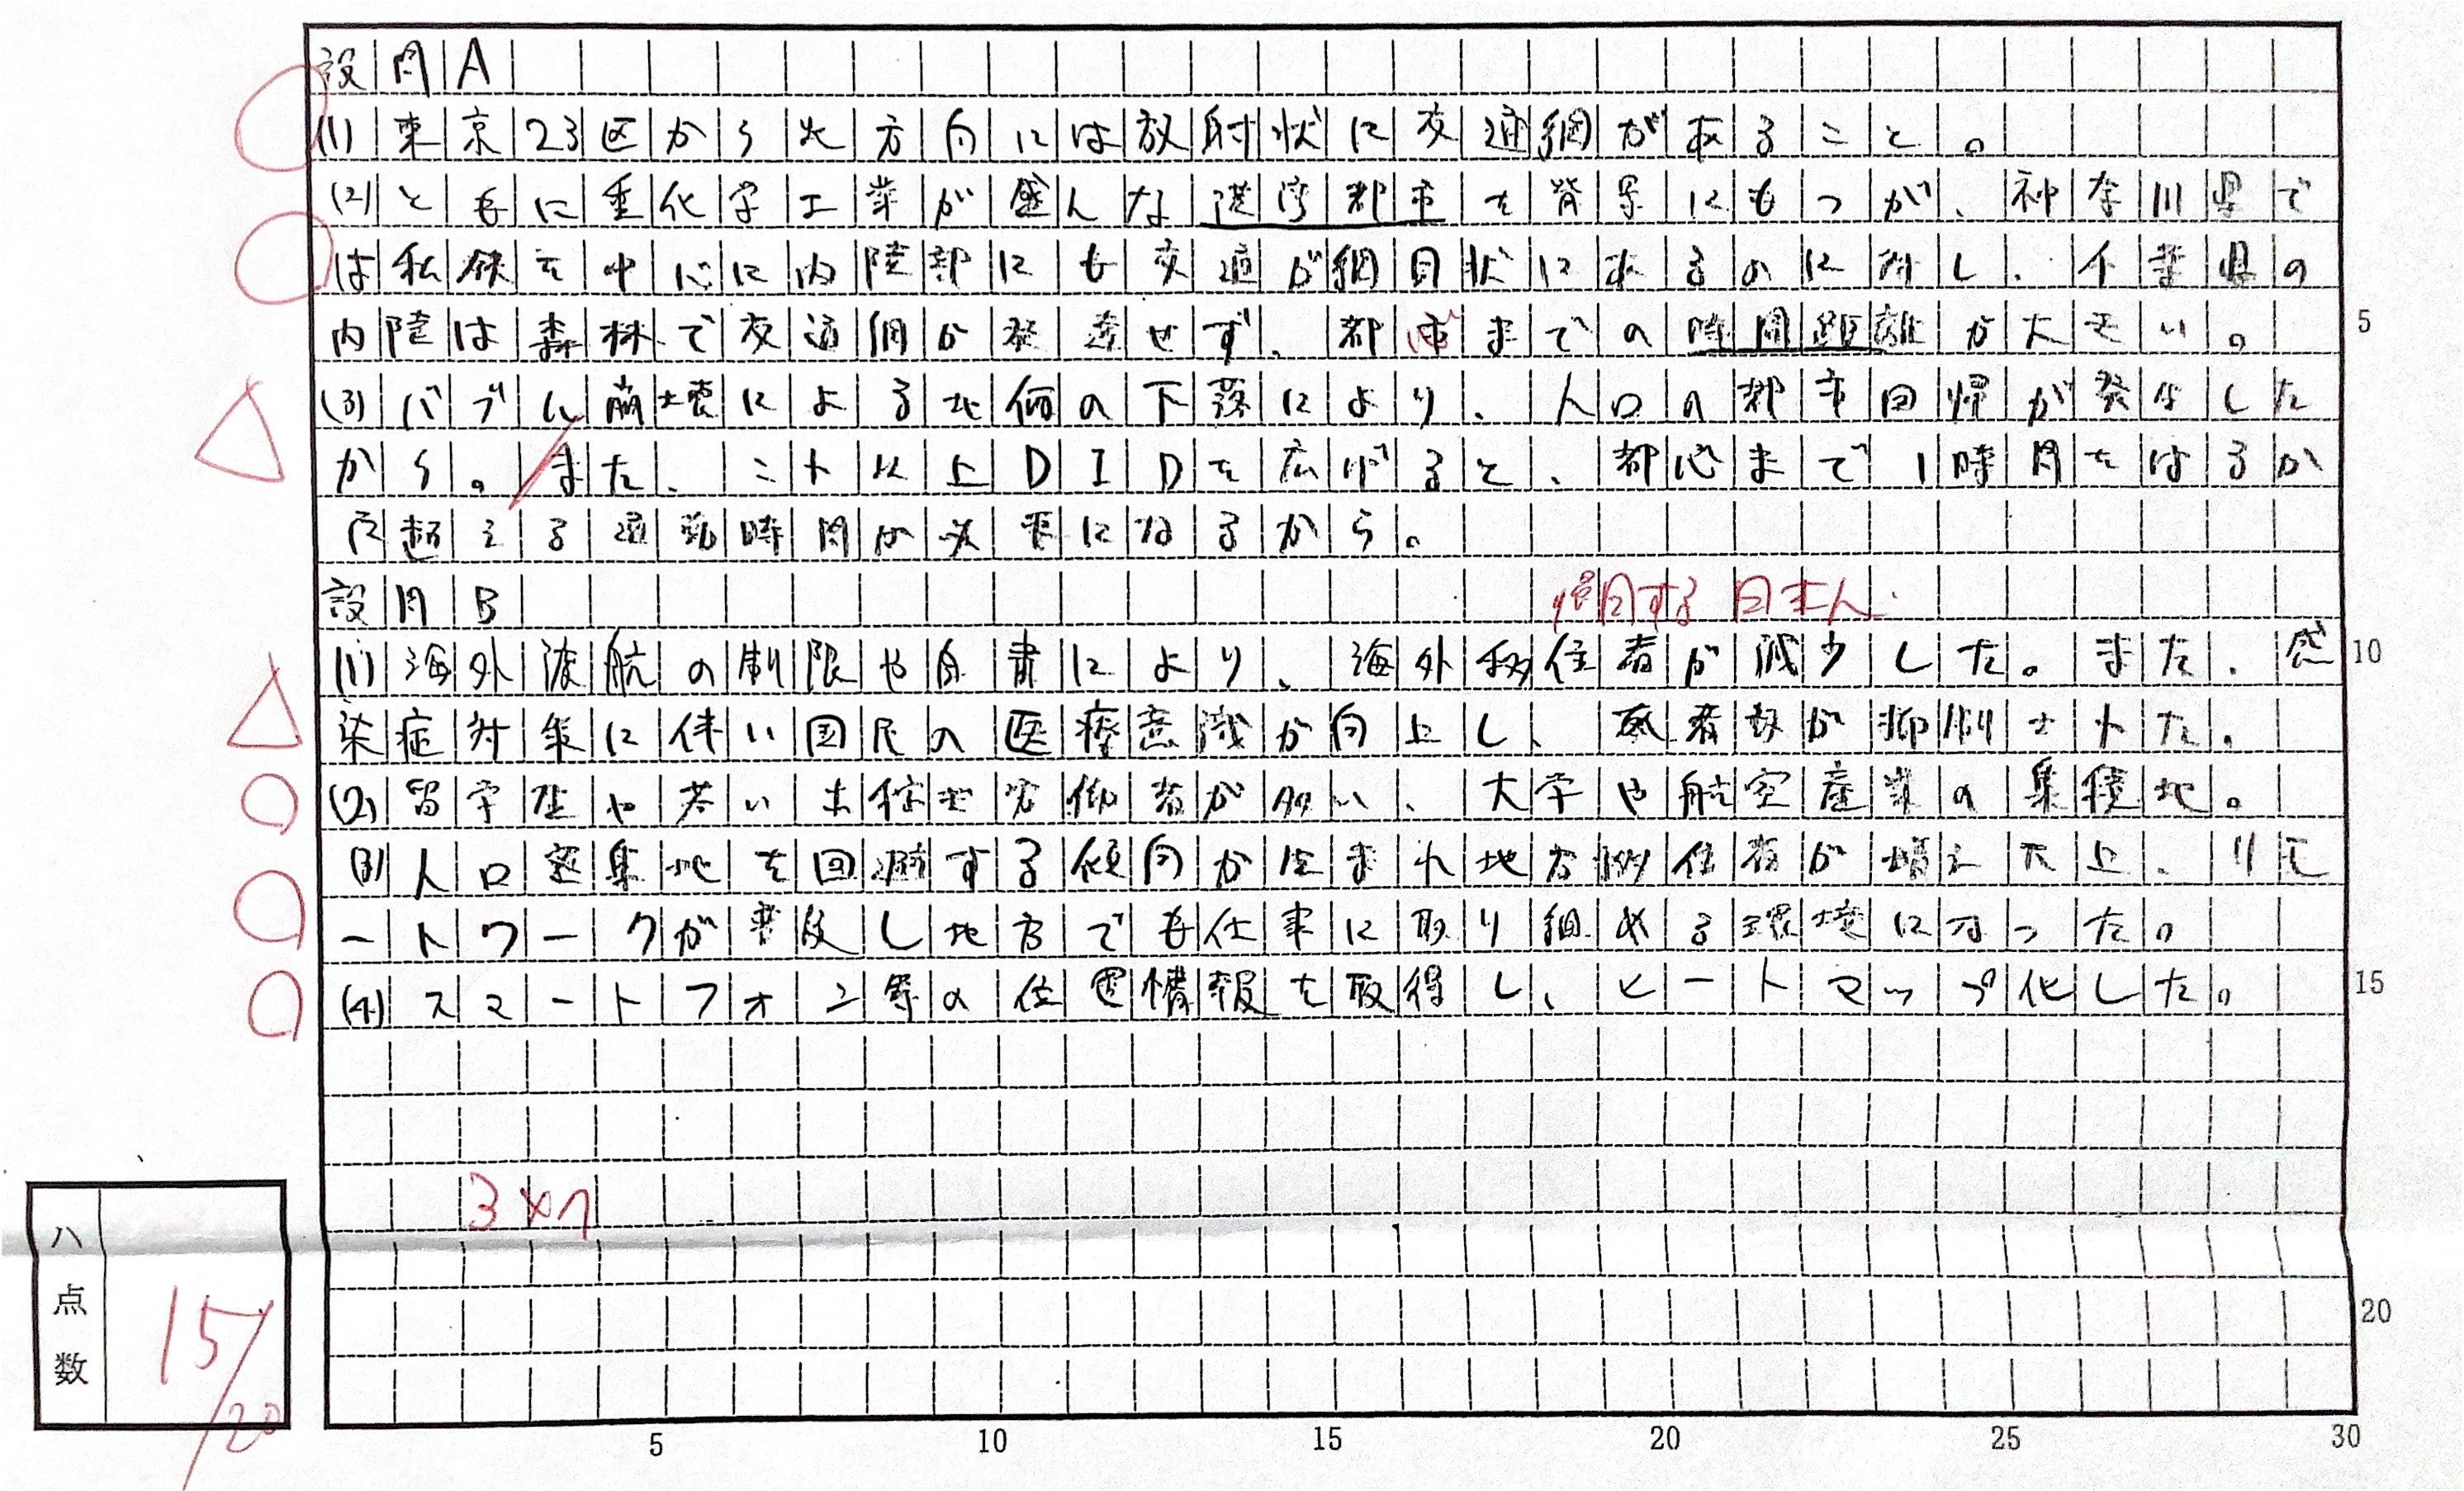 設問A
(1)東京23区から北方向には放射状に交通網があること。
(2)ともに重化学工業が盛んな港湾都市を背景にもつが、神奈川県で
は私鉄を中心に内陸部にも交通が網目状にあるのに対し、千葉県の
内陸は森林で交通網が発達せず、都市までの時間距離が大きい。
5
(3)バブル崩壊による地価の下落により、人口の都市回帰が発生した
から。また、これ以上DIDを広げると、都心まで1時間をはるか
に超える通勤時間が必要になるから。
設問B
帰国する日本人
(1)海外渡航の制限や自粛により、海外移住者が減少した。また、感
10
染症対策に伴い国民の医療意識が向上し、死者数が抑制された。
(2)留学生や若い出稼ぎ労働者が多い、大学や航空産業の集積地。
(3)人口密集地を回避する傾向が生まれ地方移住者が増えた上、リモ
ートワークが普及し地方でも仕事に取り組める環境になった。
(4)スマートフォン等の位置情報を取得し、ヒートマップ化した。
15
ハ点数
15/20
20
5 10 15 20 25 30